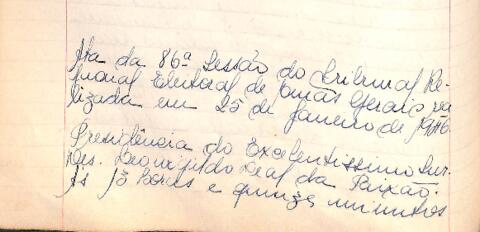 Ata da 86ª Sessão do Tribunal Re-
gional Eleitoral de Minas Gerais rea
lizada em 25 de Janeiro de 1946
Presidência do Excelentissimo Snr.
Des. Leovigildo Leal da Paixão.
Às 13 horas e quinze minutos